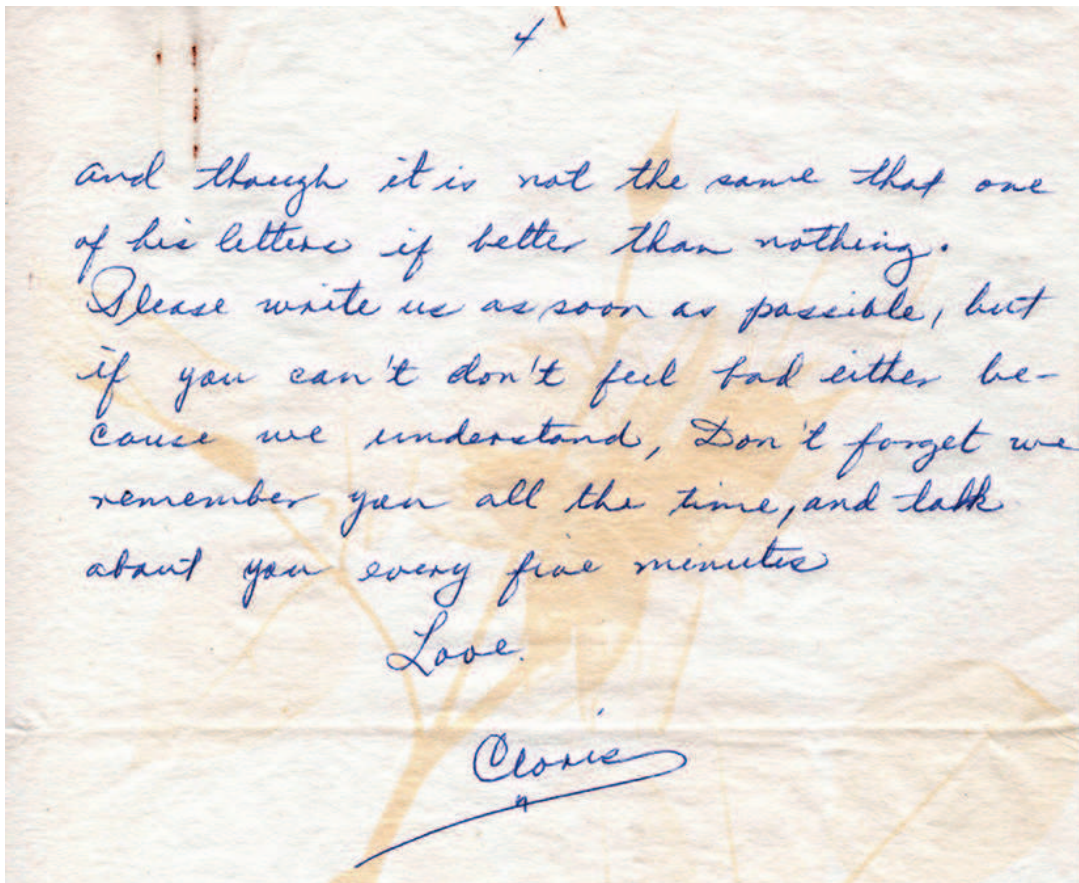 4
and though it is not the same that one
of his letters if better than nothing.
Please write us as soon as possible, but
if you can't don't feel bad either be-
cause we understand, Don't forget we
remember you all the time, and talk
about you every five minutes
Love.
Cloris